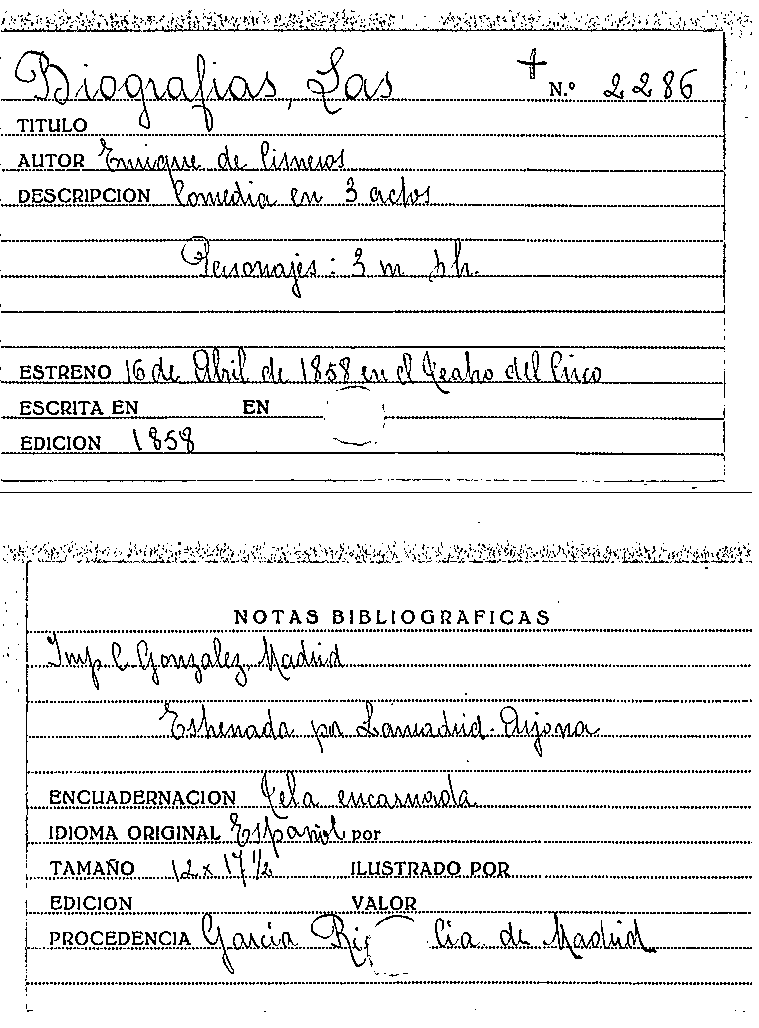 Biografias, Las
✝ N.º 2286
TITULO
AUTOR Enrique de Cisneros
DESCRIPCION Comedia en 3 actos
Personajes: 3 m h.
ESTRENO 16 de Abril de 1858 en el Teatro del Circo
ESCRITA EN EN
EDICION 1858
NOTAS BIBLIOGRAFICAS
Imp. C. Gonzalez. Madrid
Estrenada por Lamadrid-Arjona
ENCUADERNACION Tela encarnada
IDIOMA ORIGINAL Español por
TAMAÑO 12 x 17 1/2 ILUSTRADO POR
EDICION VALOR
PROCEDENCIA Garcia Cia de Madrid